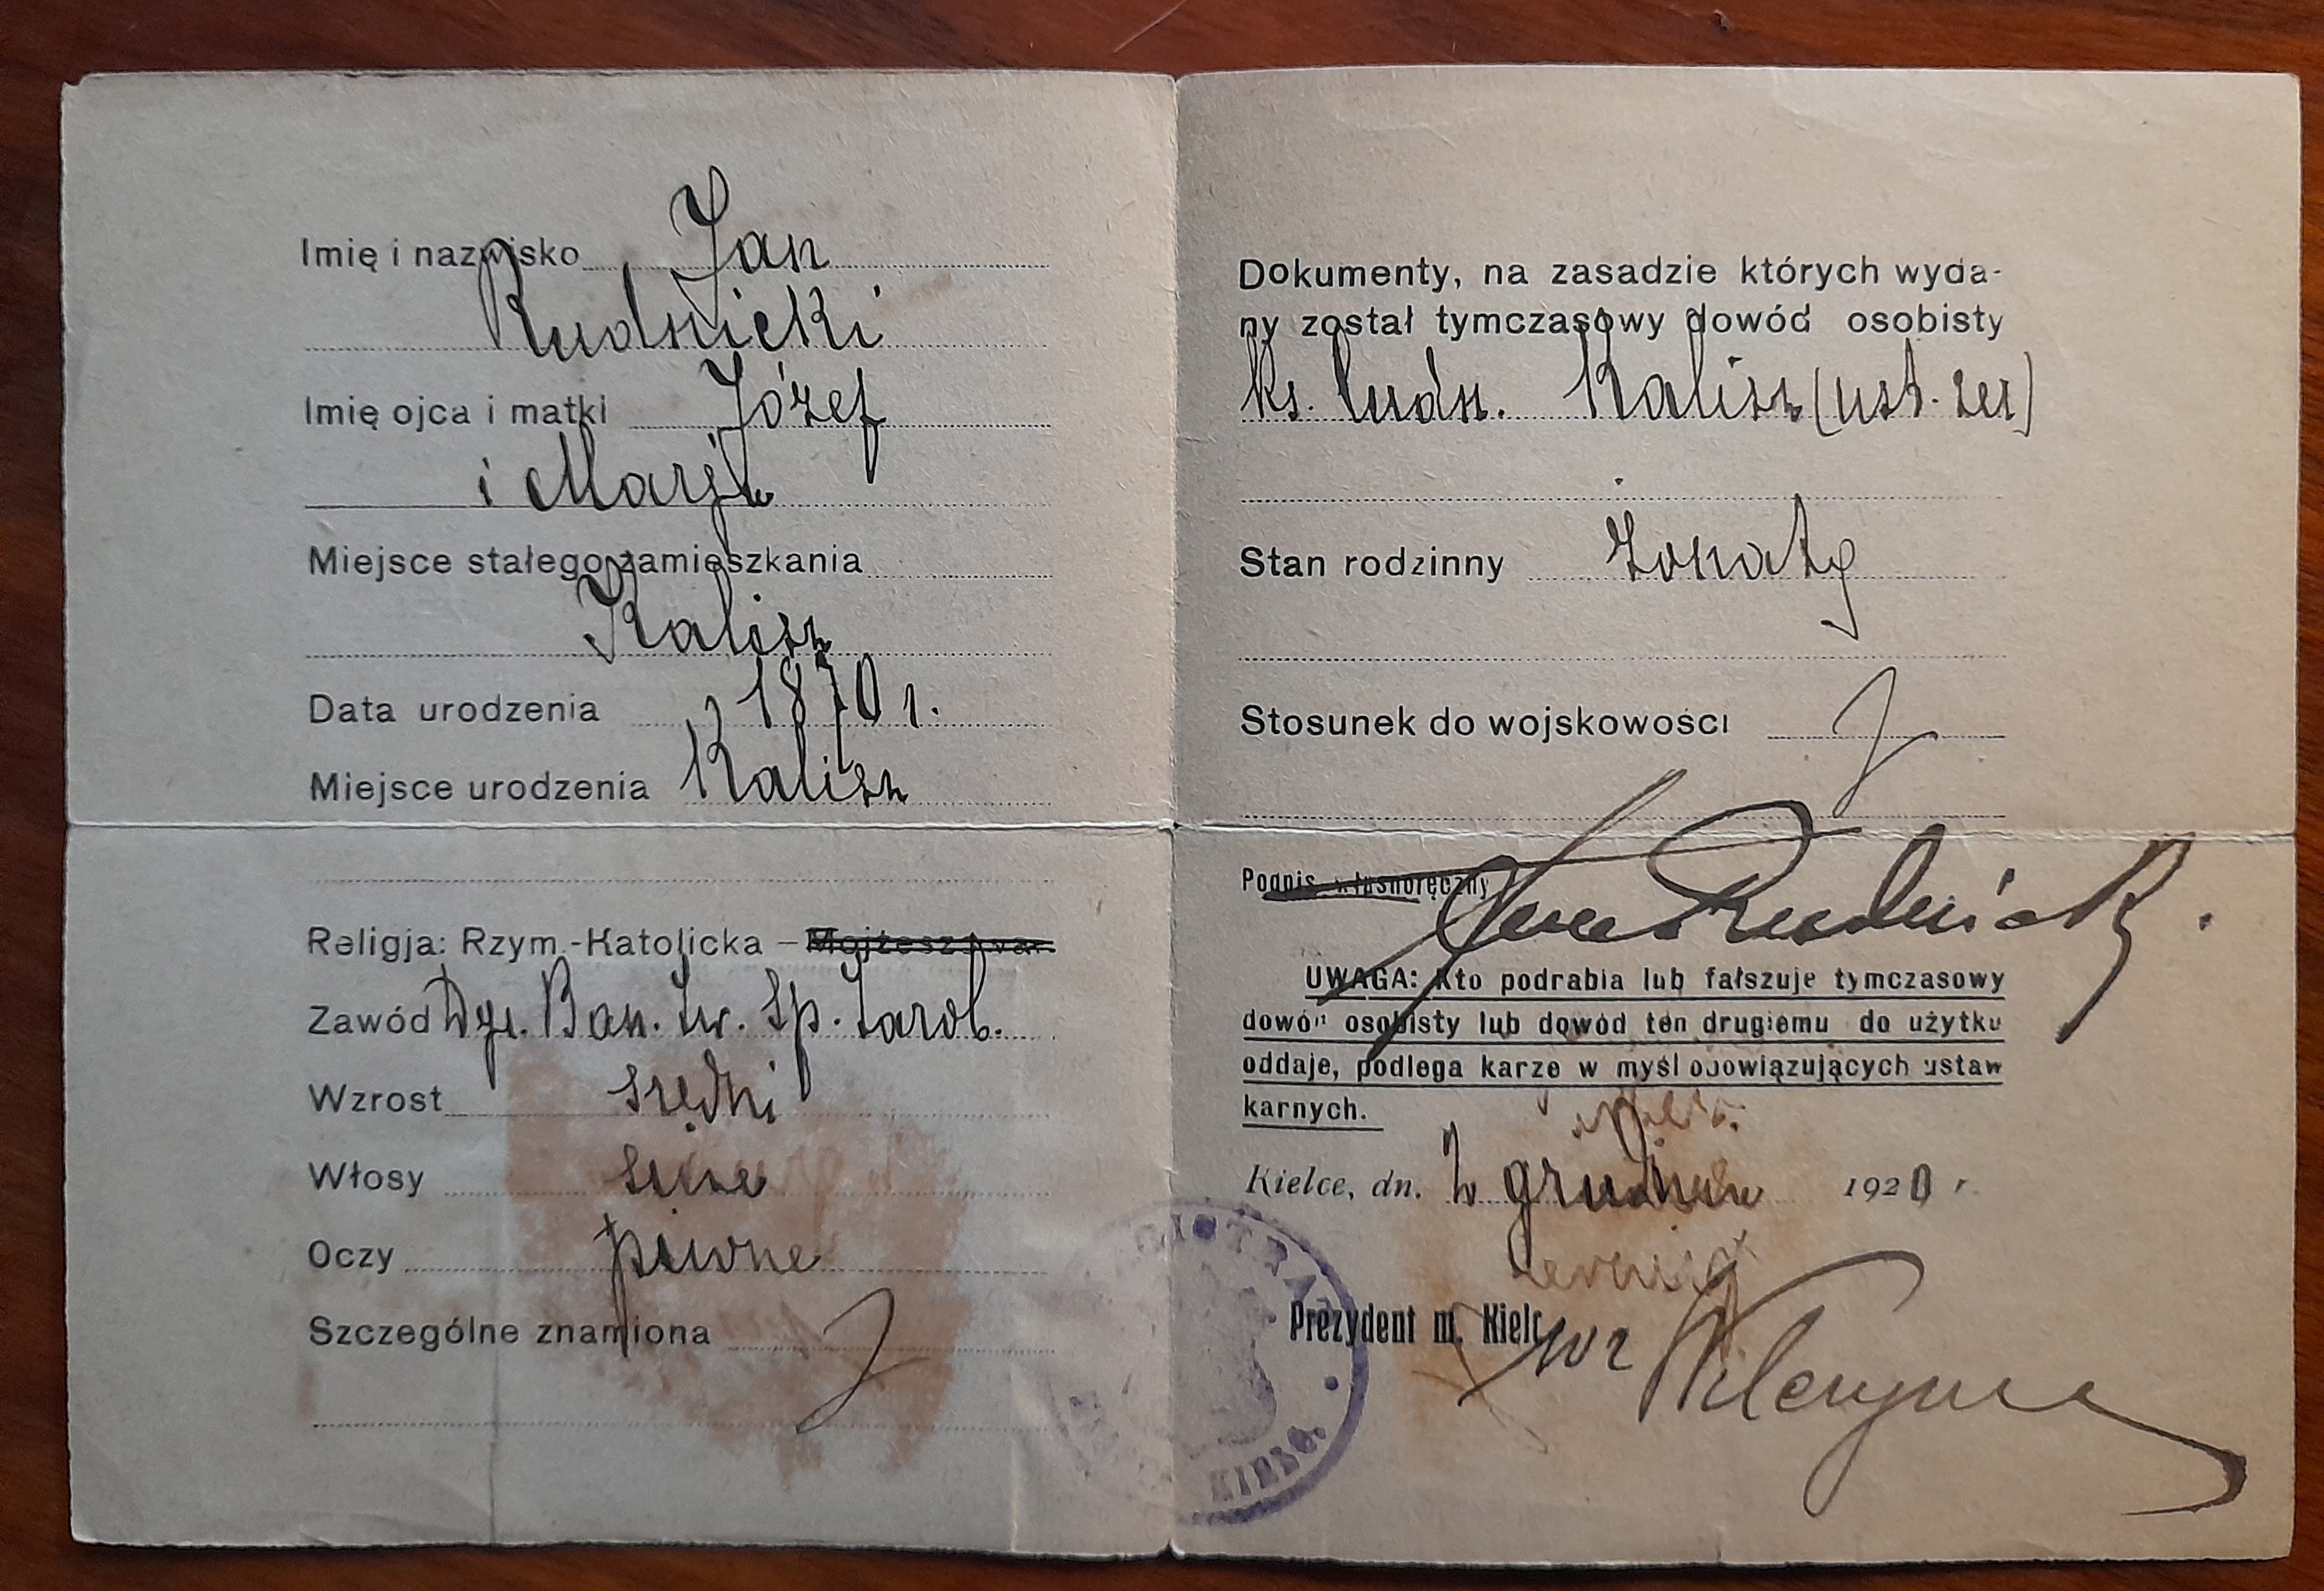 Imię i nazwisko Jan
Rudnicki
Imię ojca i matki Józef
i Marja
Miejsce stałego zamieszkania
Kalisz
Data urodzenia 1870 r.
Miejsce urodzenia Kalisz
Religja: Rzym.-Katolicka – Mojżeszowa.
Zawód Dyr. Ban. Zw. Sp. Zarob.
Wzrost średni
Włosy siwe
Oczy piwne
Szczególne znamiona
Dokumenty, na zasadzie których wyda-
ny został tymczasowy dowód osobisty
Ks. ludn. Kalisz (ust. )
Stan rodzinny żonaty
Stosunek do wojskowości
Podpis własnoręczny Jan Rudnicki.
UWAGA: Kto podrabia lub fałszuje tymczasowy
dowód osobisty lub dowód ten drugiemu do użytku
oddaje, podlega karze w myśl obowiązujących ustaw
karnych.
Kielce, dn. 2 grudnia 1920 r.
Prezydent m. Kielc
MAGISTRAT
KIELC.